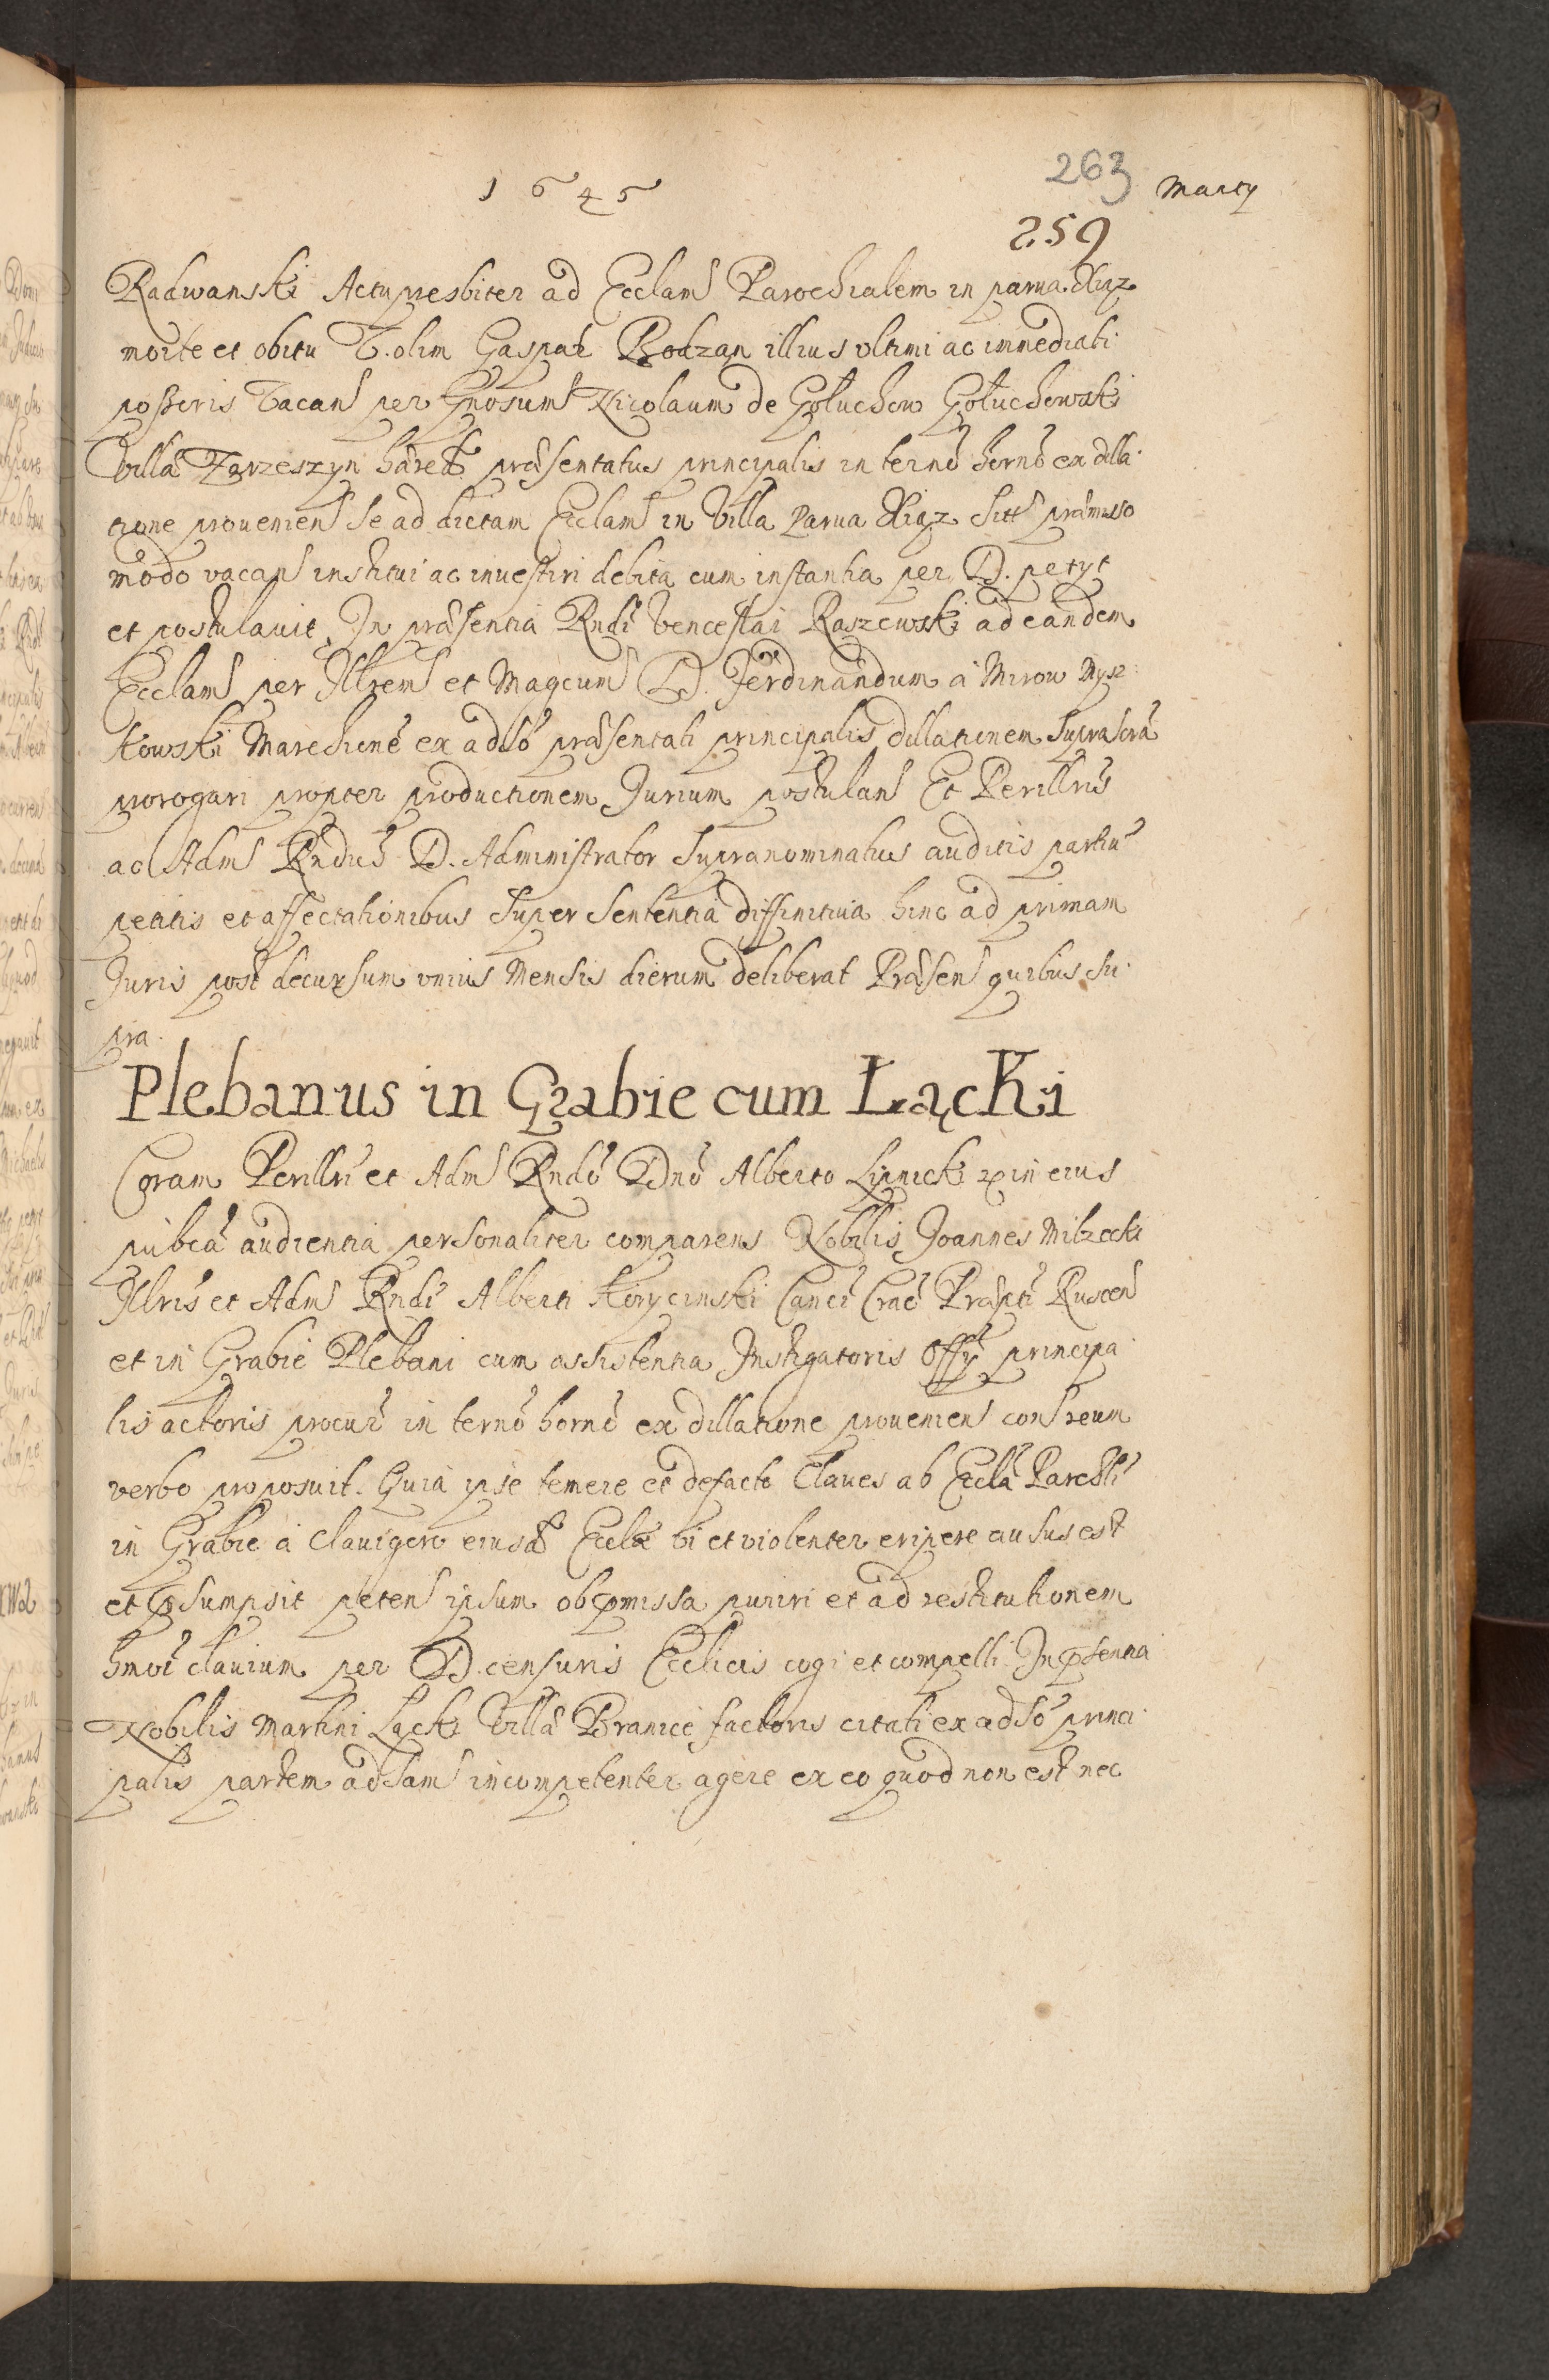 1645
263
Marty
259
Radwanski Actu presbiter ad Ecclam Parochialem in parua Xiąz
morte et obitu V. olim Gaspar Bodzan illius vltimi ac immediati
possoris vacan per Gnosum Nicolaum de Gołuchow Gołuchowski
villæ hæred præsentatus principalis in termo horno ex dilla
tione proueniens se ad dictam Ecclam in villa Parua Xiąz sitt præmisso
modo vacan institui ac inuestiri debita cum instantia per D. petyt
et postulauit. In præsentia Rndi Venceslai Raszewski ad eandem
Ecclam per Illrem et Magcum D. Ferdinandum a Mirow Mysz
kowski Marchionē ex adso præsentati principalis dillationem suprascrā
prorogari propter productionem Jurium postulan Et Perillris
ac Adm Rndus D. Administrator supranominatus auditis partiū
petitis et affectationibus super sententia diffinitiua hinc ad primam
Juris post decursum vnius Mensis dierum deliberat Præsen quibus su
pra.
Plebanus in Grabie cum Łącki
Coram Perillri et Adm Rndo Dno Alberto Lipnicki in eius
pubca audientia personaliter comparens Nobilis Joannes Milzecki
Illris et Adm Rndi Alberti Korycinski Canci Crac Præpti Ruscen
et in Grabie Plebani cum assistentia Instigatoris Offy principa
lis actoris procur in termo horno ex dillatione prouenien con reum
verbo proposuit. Quia ipse temere et defacto Claues ab Eccla Parchli
in Grabie a Clauigero eiusd Ecclæ vi et violenter eripere ausus est
et præsumpsit peten ipsum ob præmissa puniri et ad restitutionem
hmoi clauium per D. censuris Ecclicis cogi et compelli In præsentia
Nobilis Martini Łącki Villæ Branice factoris citati ex adso princi
palis partem adsam incompetenter agere ex eo quod non est nec